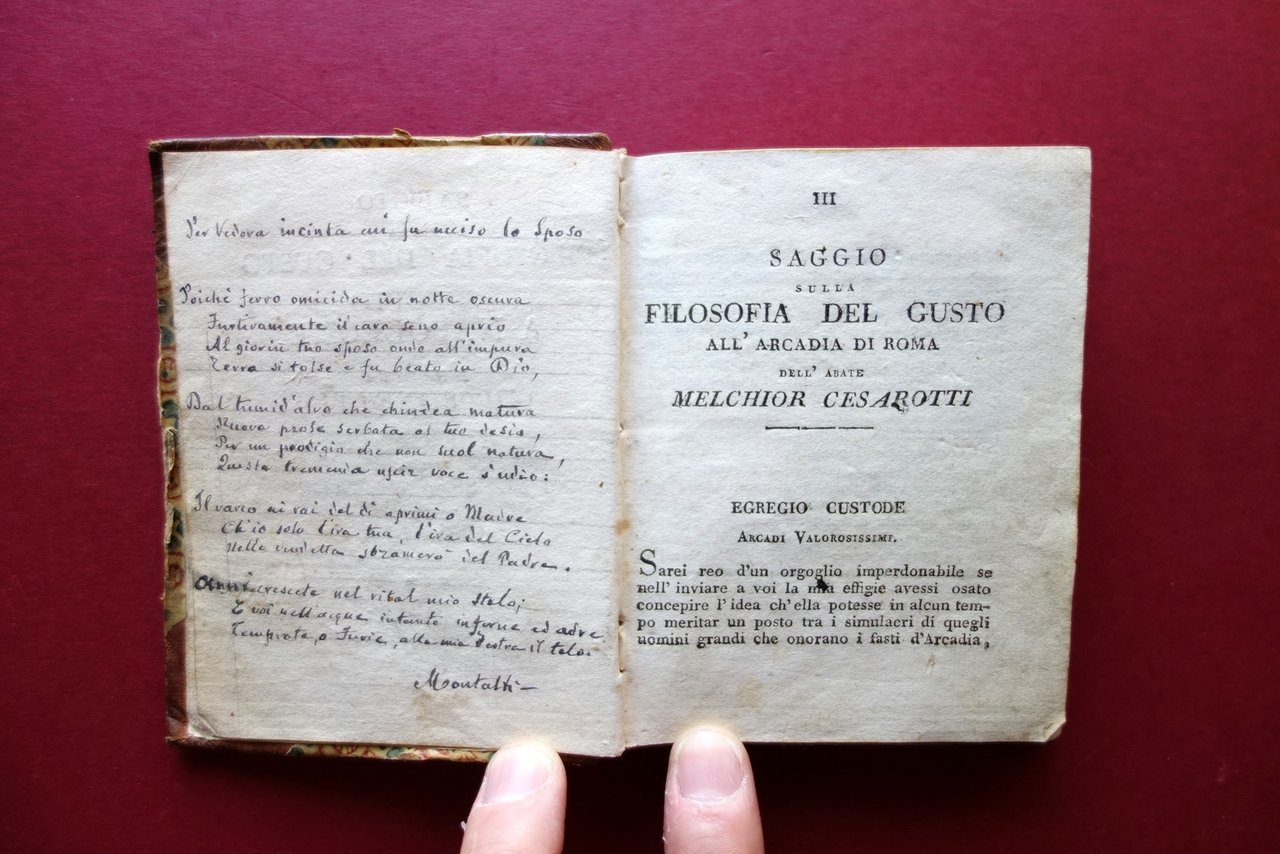 Per Vedova incinta cui fu ucciso lo Sposo
Poichè ferro omicida in notte oscura
Furtivamente il caro seno aprio
Al giovin tuo sposo onde all'impura
Terra si tolse e fu beato in Dio,
Dal tumid'alvo che chiudea matura
Nuova prole serbata al tuo desio,
Per un prodigio che non suol natura,
Questa tremenda uscir voce s'udio:
Il varco ai rai del dì aprimi o Madre
Ch'io solo l'ira tua, l'ira del Cielo
Nella vendetta sbramerò del Padre.
Anni crescete nel vital mio stelo;
E voi nell'acque intanto inferne ed adre
Temprate, o Furie, alla mia destra il telo.
Montalti
III
SAGGIO
SULLA
FILOSOFIA DEL GUSTO
ALL' ARCADIA DI ROMA
DELL' ABATE
MELCHIOR CESAROTTI
EGREGIO CUSTODE
ARCADI VALOROSISSIMI.
Sarei reo d'un orgoglio imperdonabile se
nell' inviare a voi la mia effigie avessi osato
concepire l' idea ch' ella potesse in alcun tem-
po meritar un posto tra i simulacri di quegli
uomini grandi che onorano i fasti d'Arcadia,